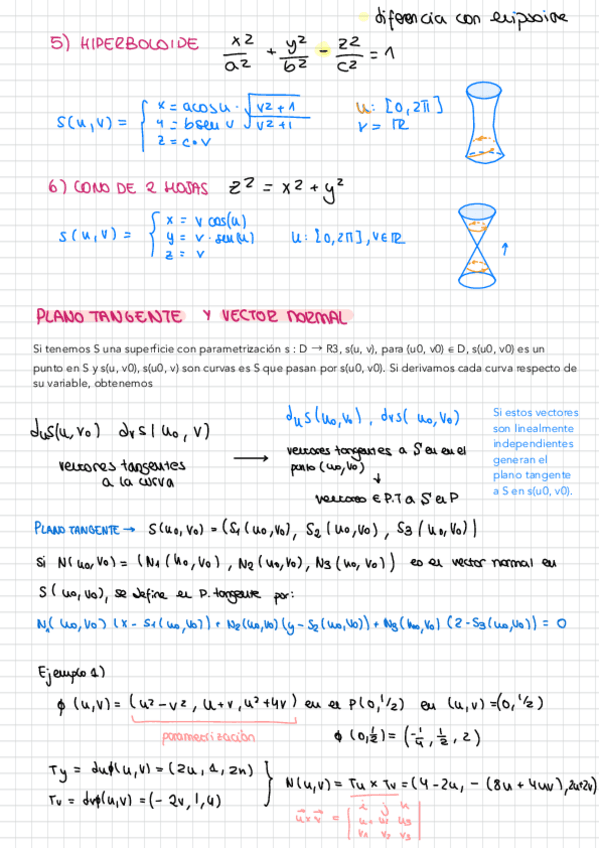 diferencia con elipsoide
5) HIPERBOLOIDE x2/a2 + y2/b2 - z2/c2 = 1
S(u,v) = { x = a cos u · √v2 + 1
y = b sen v √v2 + 1
z = c · v
u: [0, 2π]
v = ℝ
6) CONO DE 2 HOJAS z2 = x2 + y2
S(u,v) = { x = v cos(u)
y = v · sen(u)
z = v
u: [0, 2π], v ∈ ℝ
PLANO TANGENTE Y VECTOR NORMAL
Si tenemos S una superficie con parametrización s : D → R3, s(u, v), para (u0, v0) ∈ D, s(u0, v0) es un
punto en S y s(u, v0), s(u0, v) son curvas es S que pasan por s(u0, v0). Si derivamos cada curva respecto de
su variable, obtenemos
duS(u, v0) dvS(u0, v)
vectores tangentes
a la curva
→
duS(u0, v0), dvS(u0, v0)
vectores tangentes a S en en el
punto (u0, v0)
↓
vectores ∈ P.T a S en P
Si estos vectores
son linealmente
independientes
generan el
plano tangente
a S en s(u0, v0).
PLANO TANGENTE → S(u0, v0) = (S1(u0, v0), S2(u0, v0), S3(u0, v0))
Si N(u0, v0) = (N1(u0, v0), N2(u0, v0), N3(u0, v0)) es el vector normal en
S(u0, v0), se define el P. tangente por:
N1(u0, v0)(x - S1(u0, v0)) + N2(u0, v0)(y - S2(u0, v0)) + N3(u0, v0)(z - S3(u0, v0)) = 0
Ejemplo 1)
ϕ(u,v) = (u2 - v2, u + v, u2 + 4v) en el P(0, 1/2) en (u,v) = (0, 1/2)
parametrización
ϕ(0, 1/2) = (-1/4, 1/2, 2)
Ty = duϕ(u,v) = (2u, 1, 2u)
Tv = dvϕ(u,v) = (-2v, 1, 4)
} N(u,v) = Tu x Tv = (4 - 2u, - (8u + 4uv), 2u+2v)
u x v = | i j k
u1 u2 u3
v1 v2 v3 |